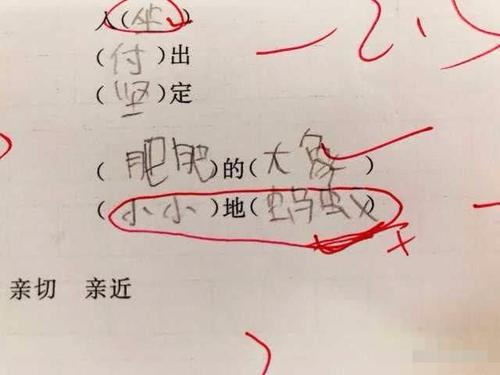 人（坐）
（付）出
（坚）定
（肥肥）的（大象）
（小小）地（蚂蚁）
亲切 亲近